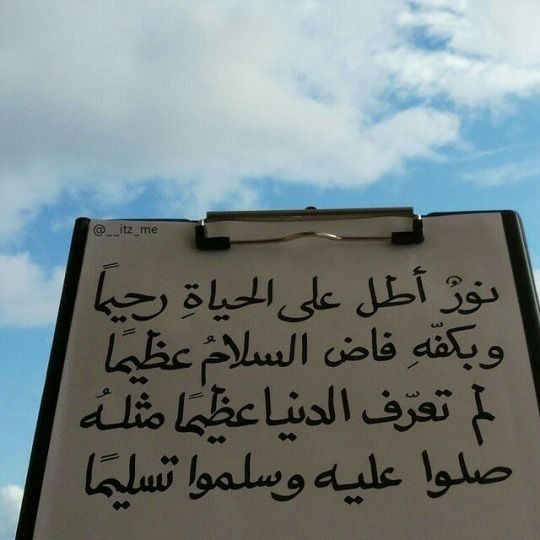 @__itz_me
نورٌ أطل على الحياةِ رحيمًا
وبكفّهِ فاض السلامُ عظيمًا
لم تعرّف الدنيا عظيمًا مثلهُ
صلوا عليه وسلموا تسليمًا